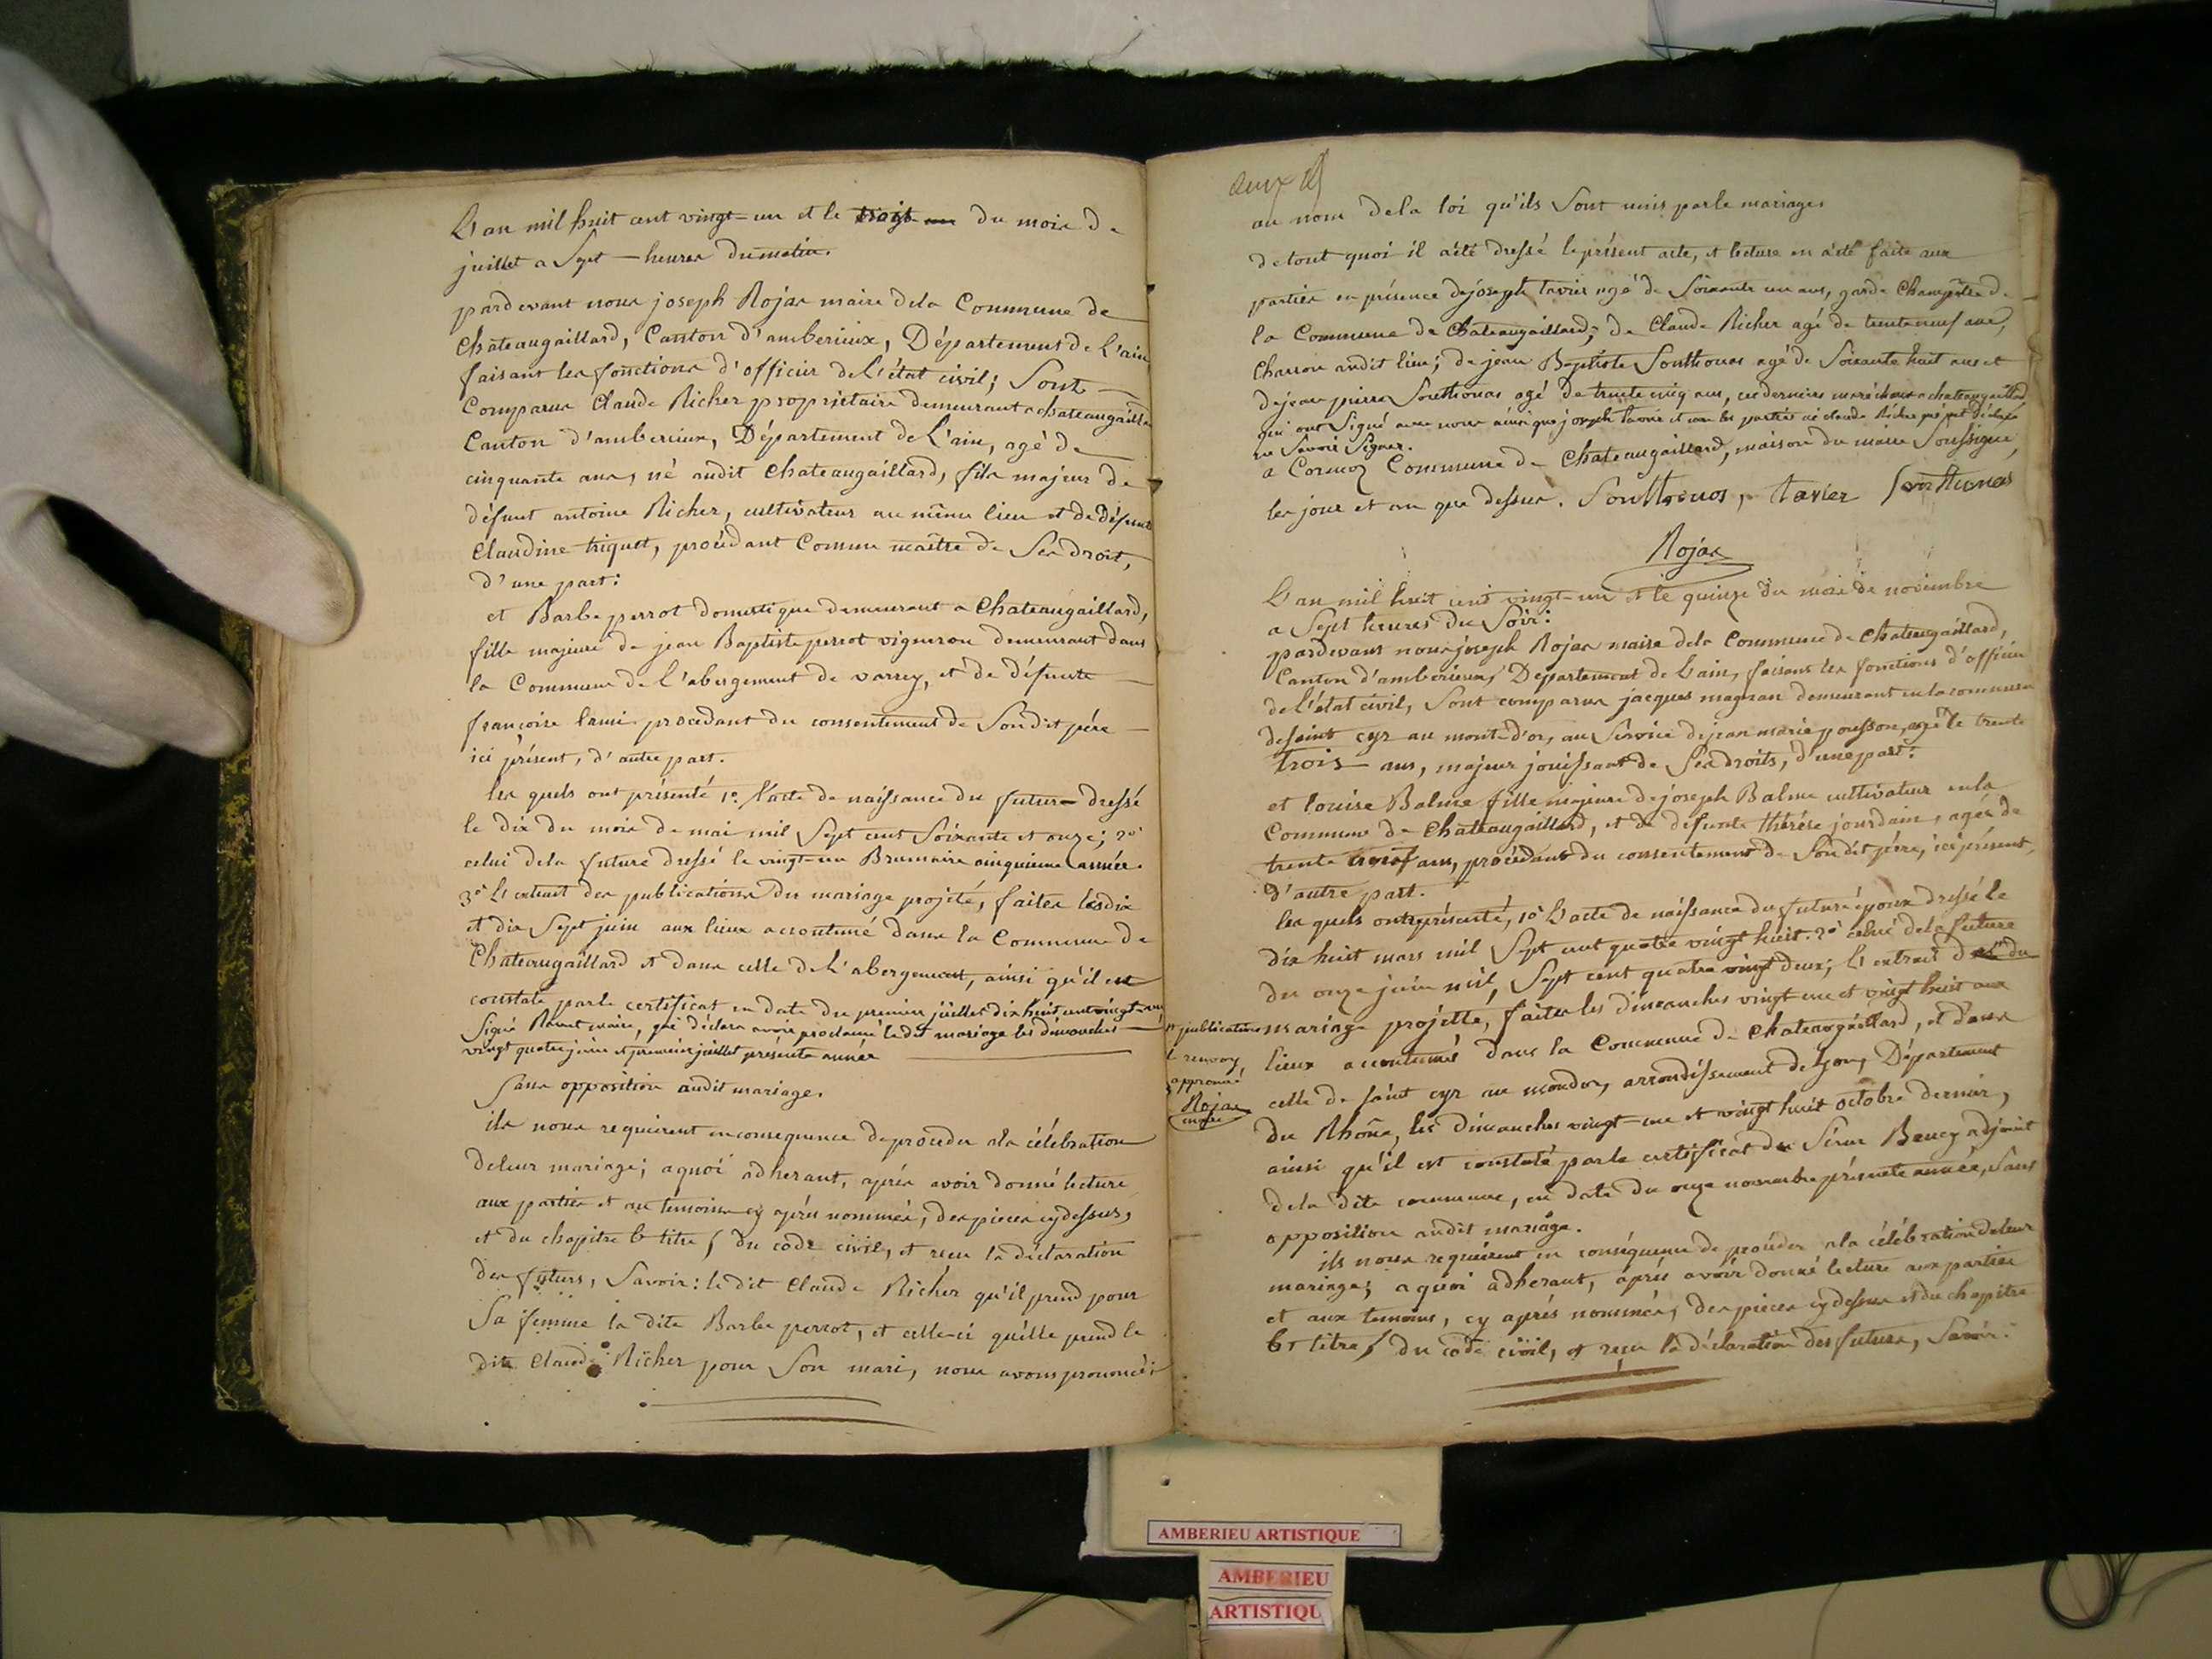 L'an mil huit cent vingt-un et le trois du mois de
juillet a Sept heures du matin.
pardevant nous joseph Rojas maire dela Commune de
chateaugaillard, Canton d'amberieux, Département de L'ain
faisant les fonctions d'officier de L'état civil; Sont
Comparus Claude Richer propriétaire demeurant a chateaugaillard
Canton d'amberieux, Département de L'ain, agé de
cinquante ans, né audit chateaugaillard, fils majeur de
défunt antoine Richer, cultivateur au même lieu et de défunte
Claudine triquet, procédant Comme maître de Ses droit,
d'une part:
et Barbe perrot domestique demeurant a Chateaugaillard,
fille majeure de jean Baptiste perrot vigneron demeurant dans
la Commune de L'abergement de varrey, et de défunte
françoise lami procedant du consentement de Son dit père
ici présent, d'autre part.
les quels ont présenté 1º. l'acte de naissance du future dressé
le dix du mois de mai mil Sept cent Soixante et onze; 2º
celui dela future dressé le vingt-un Brumaire cinquieme année.
3º L'extrait des publications du mariage projeté, faites les dix
et dix Sept juin aux lieux accoutumé dans la Commune de
Chateaugaillard et dans celle de L'abergement, ainsi qu'il est
constaté par le certificat en date du premier juillet dix huit cent vingt-un
Signé maire, qui déclare avoir proclamé le dit mariage les dimanches
vingt quatre juin et premier juillet présente année
Sans opposition audit mariage.
ils nous requierent en consequence de proceder ala célébration
de leur mariage; aquoi adherant, après avoir donné lecture
aux parties et au temoins cy après nommés, des pieces cy dessus,
et du chapitre 6 titre 5 du code civil, et reçu la déclaration
des futurs, Savoir: le dit Claude Richer qu'il prend pour
Sa femme la dite Barbe perrot, et celle-ci qu'elle prend le
dit Claude Richer pour Son mari, nous avons prononcé
au nom dela loi qu'ils Sont unis par le mariage.
de tout quoi il a été dressé le présent acte, et lecture en a été faite aux
parties en présence de joseph tavier agé de Soixante un ans, garde Champêtre de
la Commune de Chateaugaillard; de Claude Richer agé de trente neuf ans,
Charron audit lieu; de jean Baptiste Southonas agé de Soixante huit ans et
de jean pierre Southonas agé de trente cinq ans, ces derniers maréchaux a chateaugaillard
qui ont Signé avec nous ainsi que joseph tavier et non les parties ni claude Richer déclaré
ne Savoir Signer.
a Cormoz Commune de Chateaugaillard, maison du maire Soussigné,
les jour et an que dessus. Southonas, tavier Southonas
Rojas
L'an mil huit cent vingt-un et le quinze du mois de novembre
a Sept heures du Soir:
pardevant nous joseph Rojas maire dela Commune de Chateaugaillard,
Canton d'amberieux, Département de L'ain, faisant les fonctions d'officier
de L'état civil, Sont comparus jacques magnan demeurant en la commune
de Saint cyr au mont d'or, au Service de jean marie pousson, agé de trente
trois ans, majeur jouissant de Ses droits, d'une part:
et louise Balme fille majeure de joseph Balme cultivateur en la
Commune de Chateaugaillard, et de defunte thérèse jourdain, agée de
trente ans, procédant du consentement de Son dit père, ici présent,
d'autre part.
les quels ont présenté, 1º L'acte de naissance du futur époux dressé le
dix huit mars mil Sept cent quatre vingt huit. 2º celui dela future
du onze juin mil Sept cent quatre vingt deux; L'extrait des du
publications
le renvoy
approuvé
Rojas
maire
mariage projetté, faites les dimanches vingt-un et vingt huit aux
lieux accoutumés dans la Commune de chateaugaillard, et dans
celle de Saint cyr au mondor, arrondissement de Lyon, Département
du Rhône, les dimanches vingt-un et vingt huit octobre dernier,
ainsi qu'il est constaté par le certificat du Sieur Bency adjoint
dela dite commune, en date du onze novembre présente année, Sans
opposition audit mariage.
ils nous requierent en conséquence de procéder ala célébration de leur
mariage; aquoi adherant, après avoir donné lecture aux parties
et aux temoins, cy après nommés, des pieces cy dessus et du chapitre
6 titre 5 du code civil, et reçu la déclaration des futurs, Savoir:
AMBERIEU ARTISTIQUE
AMBERIEU
ARTISTIQU